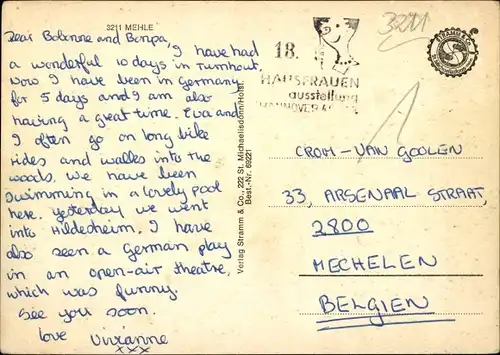 3211 MEHLE
Dear Bobonne and Bonpa,
I have had
a wonderful 10 days in Turnhout.
Now I have been in Germany
for 5 days and I am also
having a great time. Eva and
I often go on long bike
rides and walks into the
woods. We have been
swimming in a lovely pool
here. Yesterday we went
into Hildesheim. I have
also seen a German play
in an open-air theatre,
which was funny.
See you soon.
love Vivianne
xxx
Verlag Stramm & Co., 222 St. Michaelisdonn/Holst.
Best.-Nr. 69221
18.
HAUSFRAUEN
ausstellung
HANNOVER
3211
STRAMM & CO.
CROM-VAN GOOLEN
33, ARSENAAL STRAAT,
2800
MECHELEN
BELGIEN